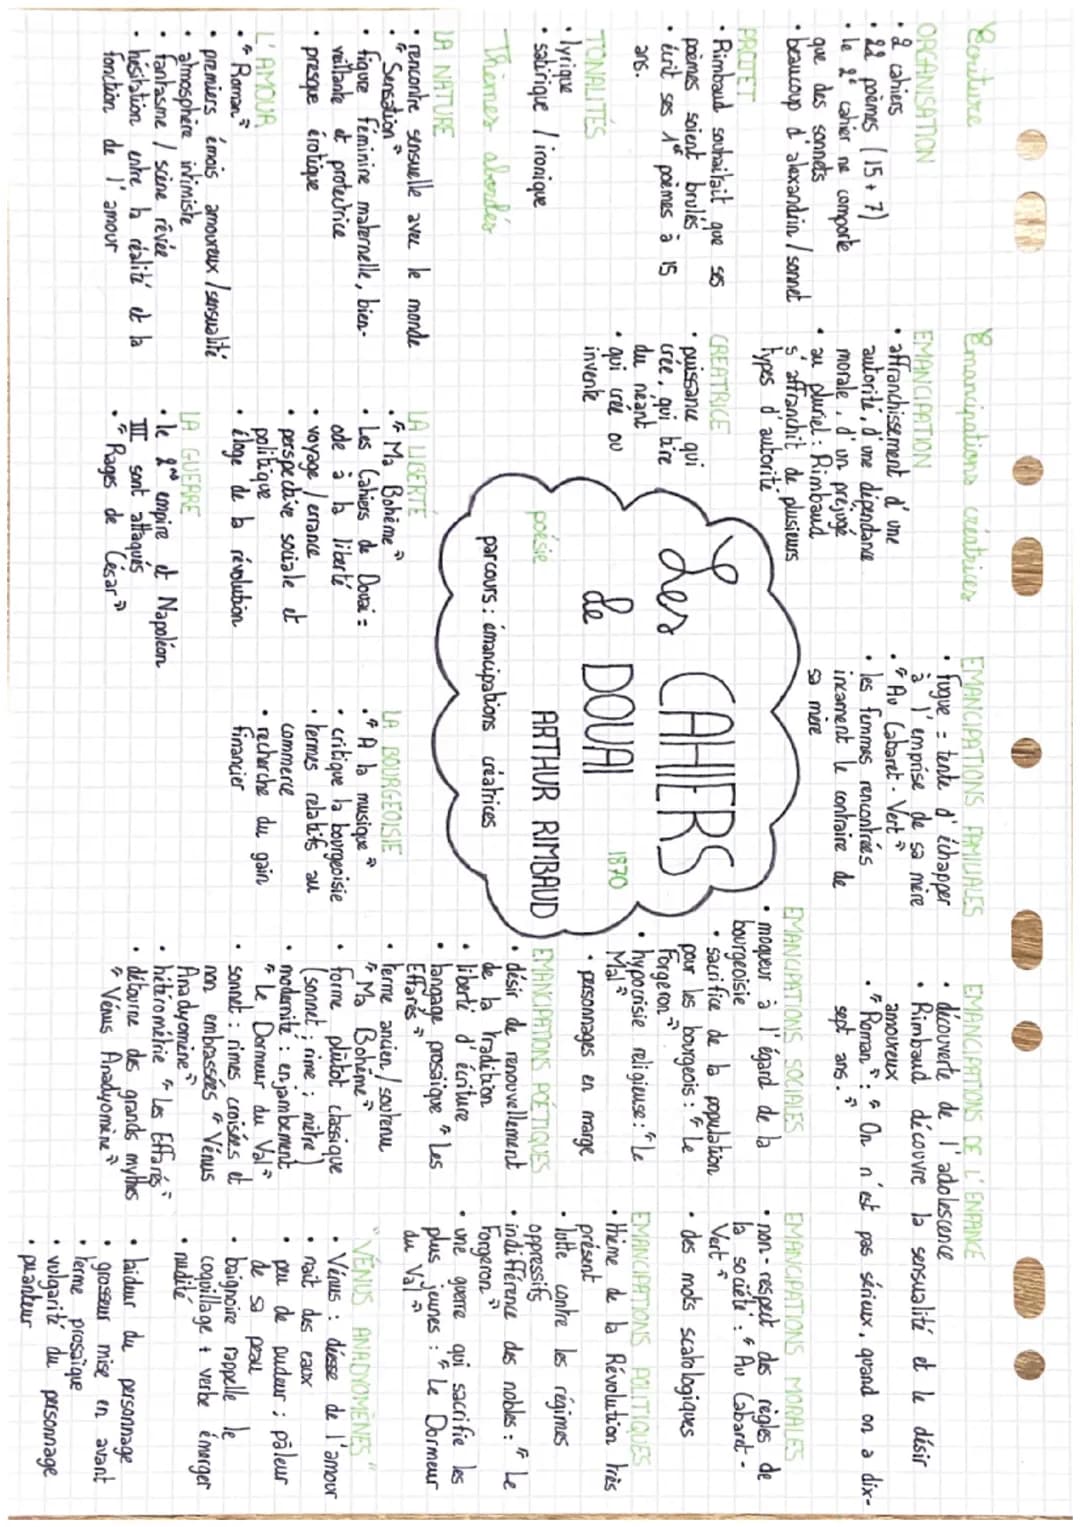 Ecriture
ORGANISATION
• 2 cahiers
• 22 poèmes (15 + 7)
• le 2e cahier ne comporte
que des sonnets
• beaucoup d'alexandrin / sonnet
PROJET
• Rimbaud souhaitait que ses
poèmes soient brûlés
• écrit ses 1er poèmes à 15
ans.
TONALITÉS
• lyrique
• satirique / ironique
Thèmes abordés
LA NATURE
• rencontre sensuelle avec le monde
• "Sensation"
• figure féminine maternelle, bien-
veillante et protectrice
• presque érotique
L'AMOUR
• "Roman"
• premiers émois amoureux / sensualité
• atmosphère intimiste
• fantasme / scène rêvée
• hésitation entre la réalité et la
fonction de l'amour
Emancipations créatrices
EMANCIPATION
• affranchissement d'une
autorité, d'une dépendance
morale, d'un préjugé
• au pluriel : Rimbaud
s'affranchit de plusieurs
types d'autorité
CREATRICE
• puissance qui
crée, qui tire
du néant
• qui crée ou
invente
LA LIBERTÉ
• "Ma Bohème"
• Les Cahiers de Douai =
ode à la liberté
• voyage / errance
• perspective sociale et
politique
• éloge de la révolution
LA GUERRE
• le 2nd empire et Napoléon
III sont attaqués
• "Rages de César"
Les CAHIERS
de DOUAI
1870
ARTHUR RIMBAUD
poésie
parcours : émancipations créatrices
EMANCIPATIONS FAMILIALES
• fugue = tente d'échapper
à l'emprise de sa mère
• "Au Cabaret-Vert"
• les femmes rencontrées
incarnent le contraire de
sa mère
LA BOURGEOISIE
• "A la musique"
• critique la bourgeoisie
• termes relatifs au
commerce
• recherche du gain
financier
EMANCIPATIONS DE L'ENFANCE
• découverte de l'adolescence
• Rimbaud découvre la sensualité et le désir
amoureux
• "Roman" : "On n'est pas sérieux, quand on a dix-
sept ans."
EMANCIPATIONS SOCIALES
• moqueur à l'égard de la
bourgeoisie
• sacrifice de la population
pour les bourgeois : "Le
Forgeron"
• hypocrisie religieuse : "Le
Mal"
• personnages en marge
EMANCIPATIONS POÉTIQUES
• désir de renouvellement
de la tradition
• liberté d'écriture
• langage prosaïque "Les
Effarés"
• terme ancien / soutenu
"Ma Bohème"
• forme plutôt classique
(sonnet ; rime ; mètre)
• modernité : enjambement
"Le Dormeur du Val"
• sonnet : rimes croisées et
non embrassées "Vénus
Anadyomène"
• hétérométrie "Les Effarés"
• détourne des grands mythes
"Vénus Anadyomène"
EMANCIPATIONS MORALES
• non-respect des règles de
la société : "Au Cabaret-
Vert"
• des mots scatologiques
EMANCIPATIONS POLITIQUES
• thème de la Révolution très
présent
• lutte contre les régimes
oppressifs
• indifférence des nobles : "Le
Forgeron"
• une guerre qui sacrifie les
plus jeunes : "Le Dormeur
du Val"
"VÉNUS ANADYOMÈNES"
• Vénus : déesse de l'amour
• nait des eaux
• peu de pudeur ; pâleur
de sa peau
• baignoire rappelle le
coquillage + verbe émerger
• nudité
• laideur du personnage
• grosseur mise en avant
• terme prosaïque
• vulgarité du personnage
• puanteur